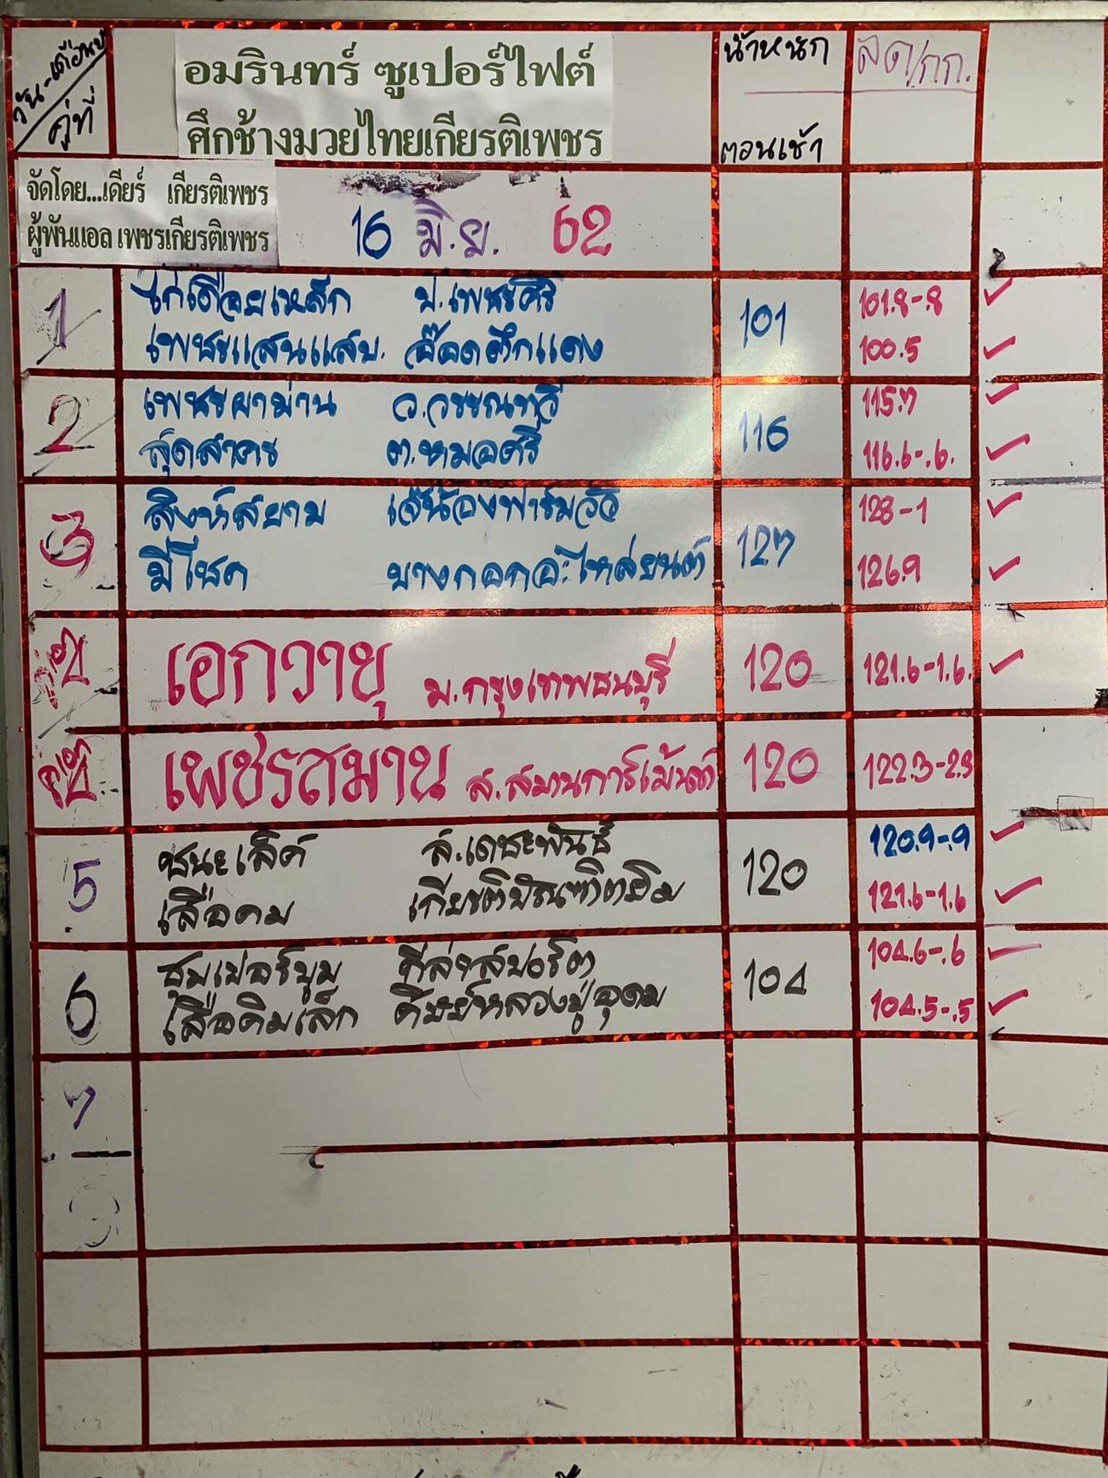 วัน-เดือน-ปี
คู่ที่
อมรินทร์ ซูเปอร์ไฟต์
ศึกช้างมวยไทยเกียรติเพชร
น้ำหนัก
ตอนเช้า
ลด/กก.
จัดโดย...เดียร์ เกียรติเพชร
ผู้พันแอล เพชรเกียรติเพชร
16 มิ.ย. 62
1
ไก่เดือยเหล็ก ป.เพชรศิริ
101
101.8-.8 ✓
เพชรแสนแสบ. อ๊อดตึกแดง
100.5 ✓
2
เพชรผาม่าน ว.วรรณทวี
116
115.7 ✓
สุดสาคร ต.หมอศรี
116.6-.6. ✓
3
สิงห์สยาม
127
128-1 ✓
มีโชค บางกอกอะไหล่ยนต์
126.9 ✓
คู่เอก
เอกวายุ ม.กรุงเทพธนบุรี
120
121.6-1.6. ✓
คู่เอก
เพชรสมาน ส.สมานการ์เม้นต์
120
122.3-2.3
5
ชนะเลิศ ส.เดชะพันธ์
120
120.9-.9 ✓
เสือคม
121.6-1.6 ✓
6
ซุปเปอร์บูม
104
104.6-.6 ✓
เสือคิมเล็ก ศิษย์หลวงปู่อุดม
104.5-.5 ✓
7